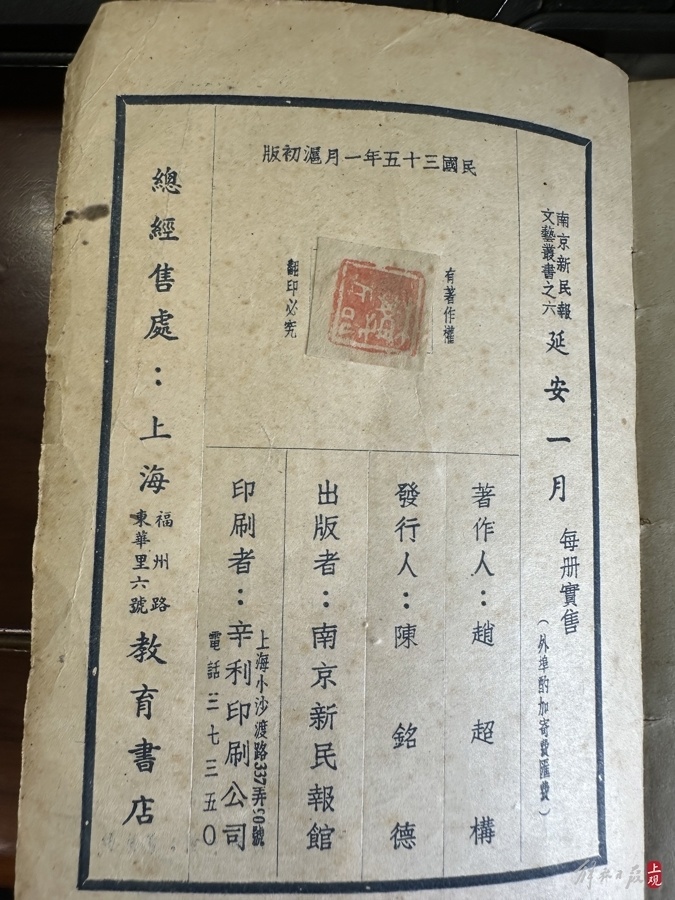 民國三十五年一月滬初版
南京新民報
文藝叢書之六
延安一月
每册實售
(外埠酌加寄費匯費)
有著作權
翻印必究
著作人：趙超構
發行人：陳銘德
出版者：南京新民報館
印刷者：辛利印刷公司
上海小沙渡路337弄50號
電話三七三五〇
總經售處：上海
福州路
東華里六號
教育書店
解放日报
上观